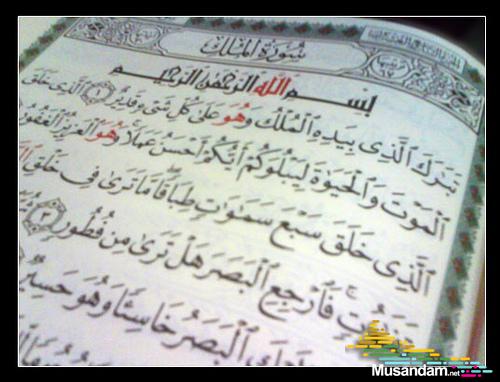 سُورَةُ الْمُلْكِ
بِسْمِ اللَّهِ الرَّحْمَٰنِ الرَّحِيمِ
تَبَارَكَ الَّذِي بِيَدِهِ الْمُلْكُ وَهُوَ عَلَىٰ كُلِّ شَيْءٍ قَدِيرٌ ١ الَّذِي خَلَقَ
الْمَوْتَ وَالْحَيَاةَ لِيَبْلُوَكُمْ أَيُّكُمْ أَحْسَنُ عَمَلًا وَهُوَ الْعَزِيزُ الْغَفُورُ
الَّذِي خَلَقَ سَبْعَ سَمَاوَاتٍ طِبَاقًا مَّا تَرَىٰ فِي خَلْقِ
فَارْجِعِ الْبَصَرَ هَلْ تَرَىٰ مِن فُطُورٍ ٣
الْبَصَرُ خَاسِئًا وَهُوَ حَسِيرٌ
Musandam.net